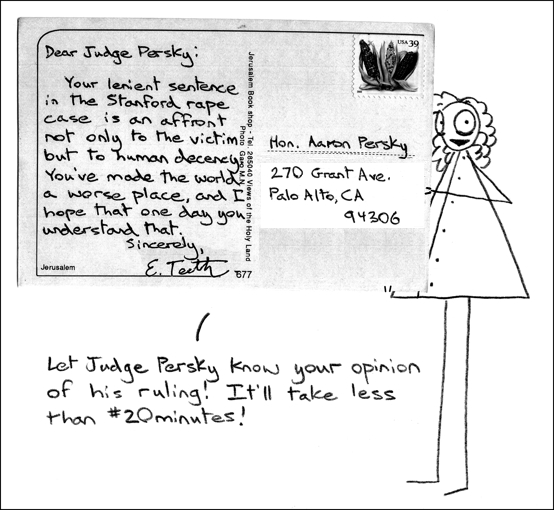 Dear Judge Persky:
Your lenient sentence
in the Stanford rape
case is an affront
not only to the victim
but to human decency.
You've made the world
a worse place, and I
hope that one day you
understand that.
Sincerely,
E. Teeth
Jerusalem
677
Jerusalem Book shop - Tel. 285040 Views of the Holy Land
Photo MAN
USA 39
Hon. Aaron Persky
270 Grant Ave.
Palo Alto, CA
94306
Let Judge Persky know your opinion
of his ruling! It'll take less
than #20minutes!